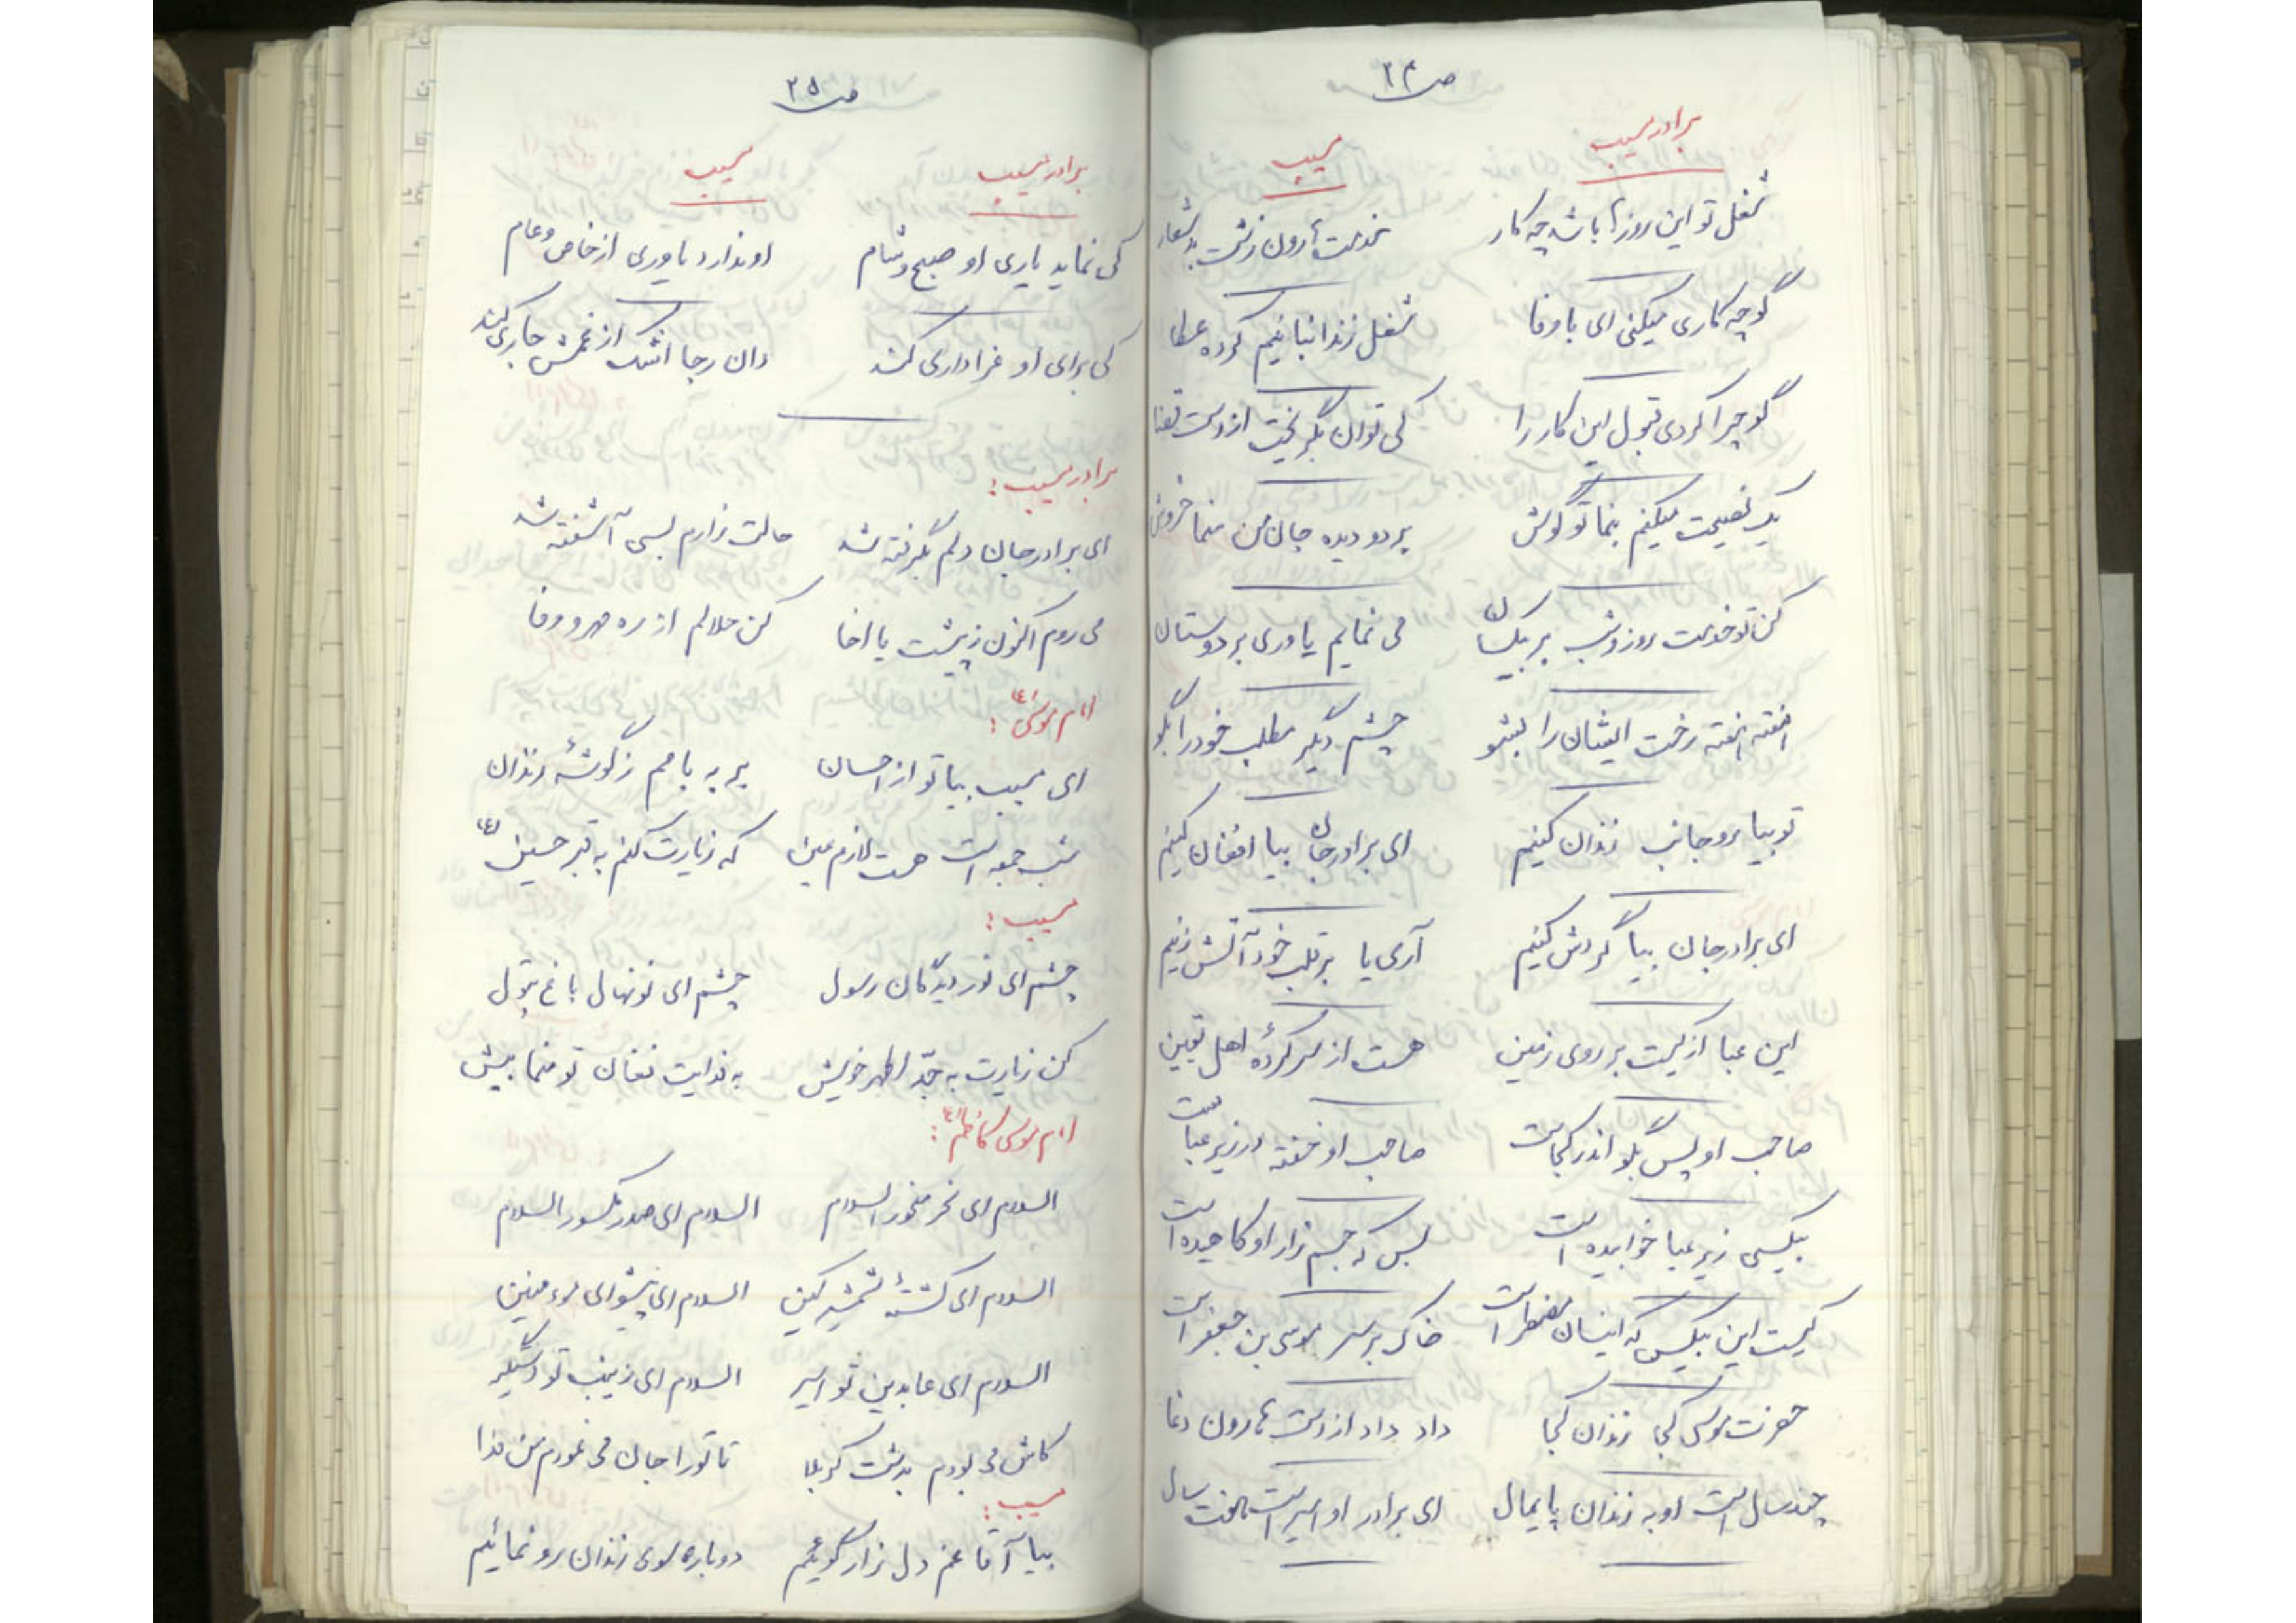 ص ۲۴
برادر مسیب
مسیب
شغل تو این روزها باشد چه کار
خدمت هارون زشت بد شعار
گو چه کاری میکنی ای باوفا
شغل زندانبانیم کرده عطا
گو چرا کردی قبول این کار را
کی توان بگریخت از دست قضا
یک نصیحت میکنم بنما تو گوش
بر دو دیده جان من منما خروش
کن تو خدمت روز و شب بر بیکسان
می نمایم یاوری بر دوستان
هفته هفته رخت ایشان را بشو
چشم دیگر مطلب خود را بگو
تو بیا رو جانب زندان کنیم
ای برادر جان بیا افغان کنیم
ای برادر جان بیا گردش کنیم
آری بیا بر قلب خود آتش زنیم
این عبا از کیست بر روی زمین
هست از سر کردهٔ اهل یقین
صاحب او پس بگو اندر کجاست
صاحب او خفته در زیر عباست
بیکسی زیر عبا خوابیده است
بس که جسم زار او کاهیده است
کیست این بیکس که اینسان مضطر است
خاک بر سر موسی بن جعفر است
حضرت موسی کجا زندان کجا
داد داد از دست هارون دغا
چند سال است او به زندان پایمال
ای برادر او اسیر است هفت سال
ص ۲۵
برادر مسیب
مسیب
کی نماید یاری او صبح و شام
او ندارد یاوری از خاص و عام
کی برای او عزاداری کند
دان رجا اشک از غمش جاری کند
برادر مسیب :
ای برادر جان دلم بگرفته شد
حالت زارم بسی آشفته شد
می روم اکنون ز پیشت یا اخا
کن حلالم از ره مهر و وفا
امام موسی ؑ :
ای مسیب بیا تو از احسان
بر به بامم ز گوشهٔ زندان
شب جمعه است هست لازم عین
که زیارت کنم به قبر حسین ؑ
مسیب :
چشم ای نور دیدگان رسول
چشم ای نونهال باغ بتول
کن زیارت به جدّ اطهر خویش
به فدایت فغان تو منما بیش
امام موسی کاظم ؑ :
السلام ای نحر منحور السلام
السلام ای صدر مکسور السلام
السلام ای کشتهٔ شمشیر کین
السلام ای پیشوای مومنین
السلام ای عابدین تو اسیر
السلام ای زینب تو دستگیر
کاش می بودم بدشت کربلا
تا تو را جان می نمودم من فدا
مسیب :
بیا آقا غم دل زار گوئیم
دوباره سوی زندان رو نمائیم